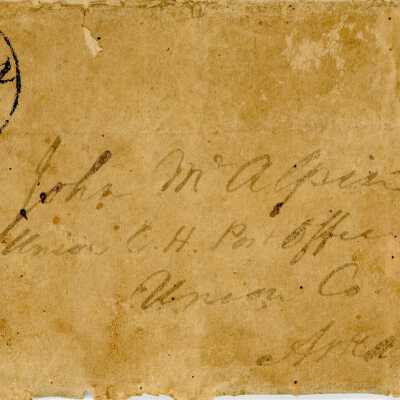 John McAlpin
Union C. H. Post Office
Union Co.